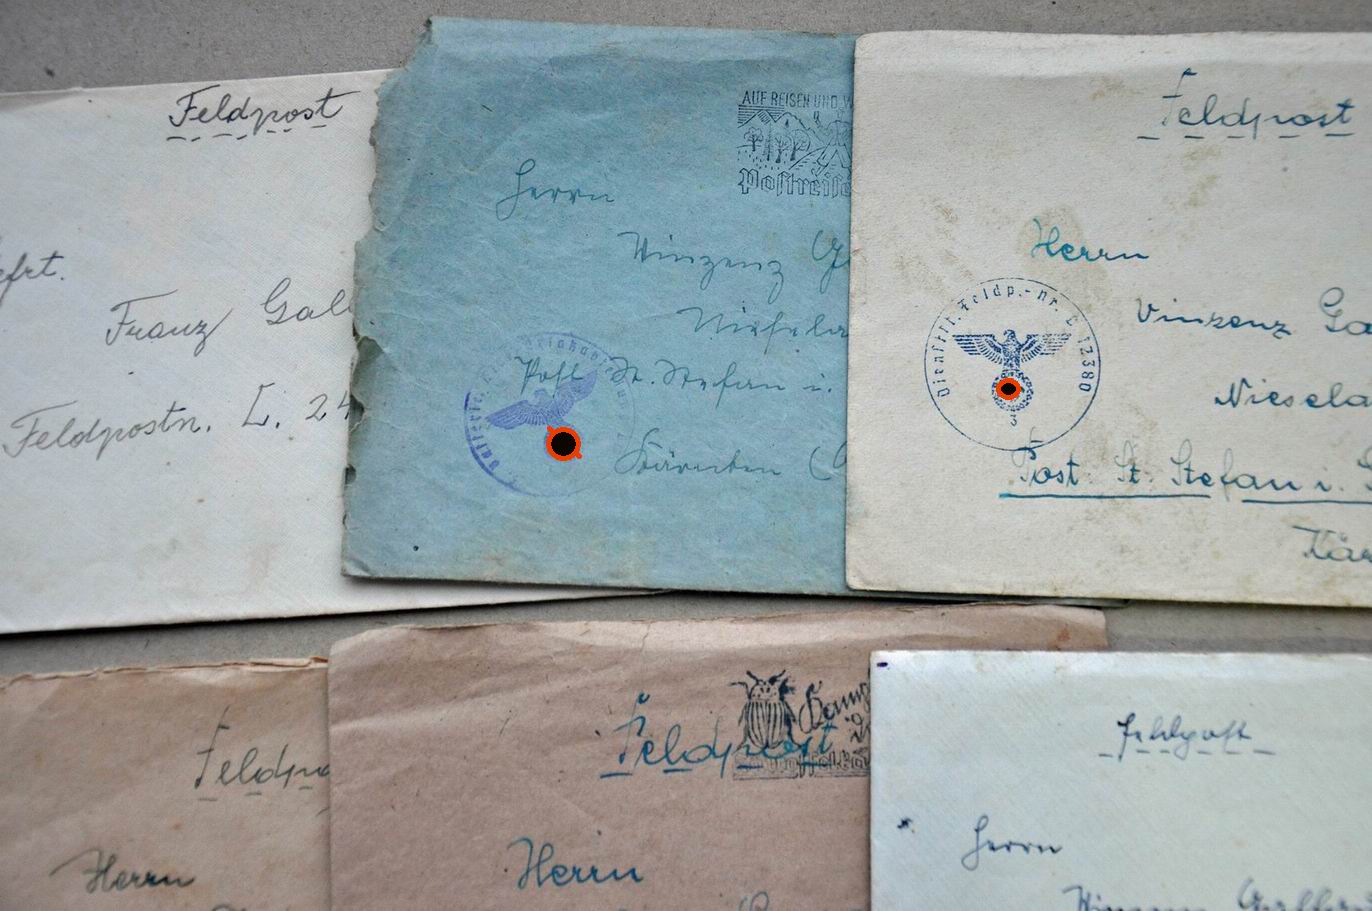 Feldpost
efrt.
Franz Gall
Feldpostn. L. 24
AUF REISEN UND W
Postreise
Herrn
Winzenz G
Post St. Stefan i.
Kärnten (
Feldpost
Herrn
Dienstst. Feldp.-nr. L 12380
3
Vinzenz Ga
Niesela
Post St. Stefan i. G
Kär
Feldpo
Herrn
Feldpost
Kampf
Herrn
Feldpost
Herrn